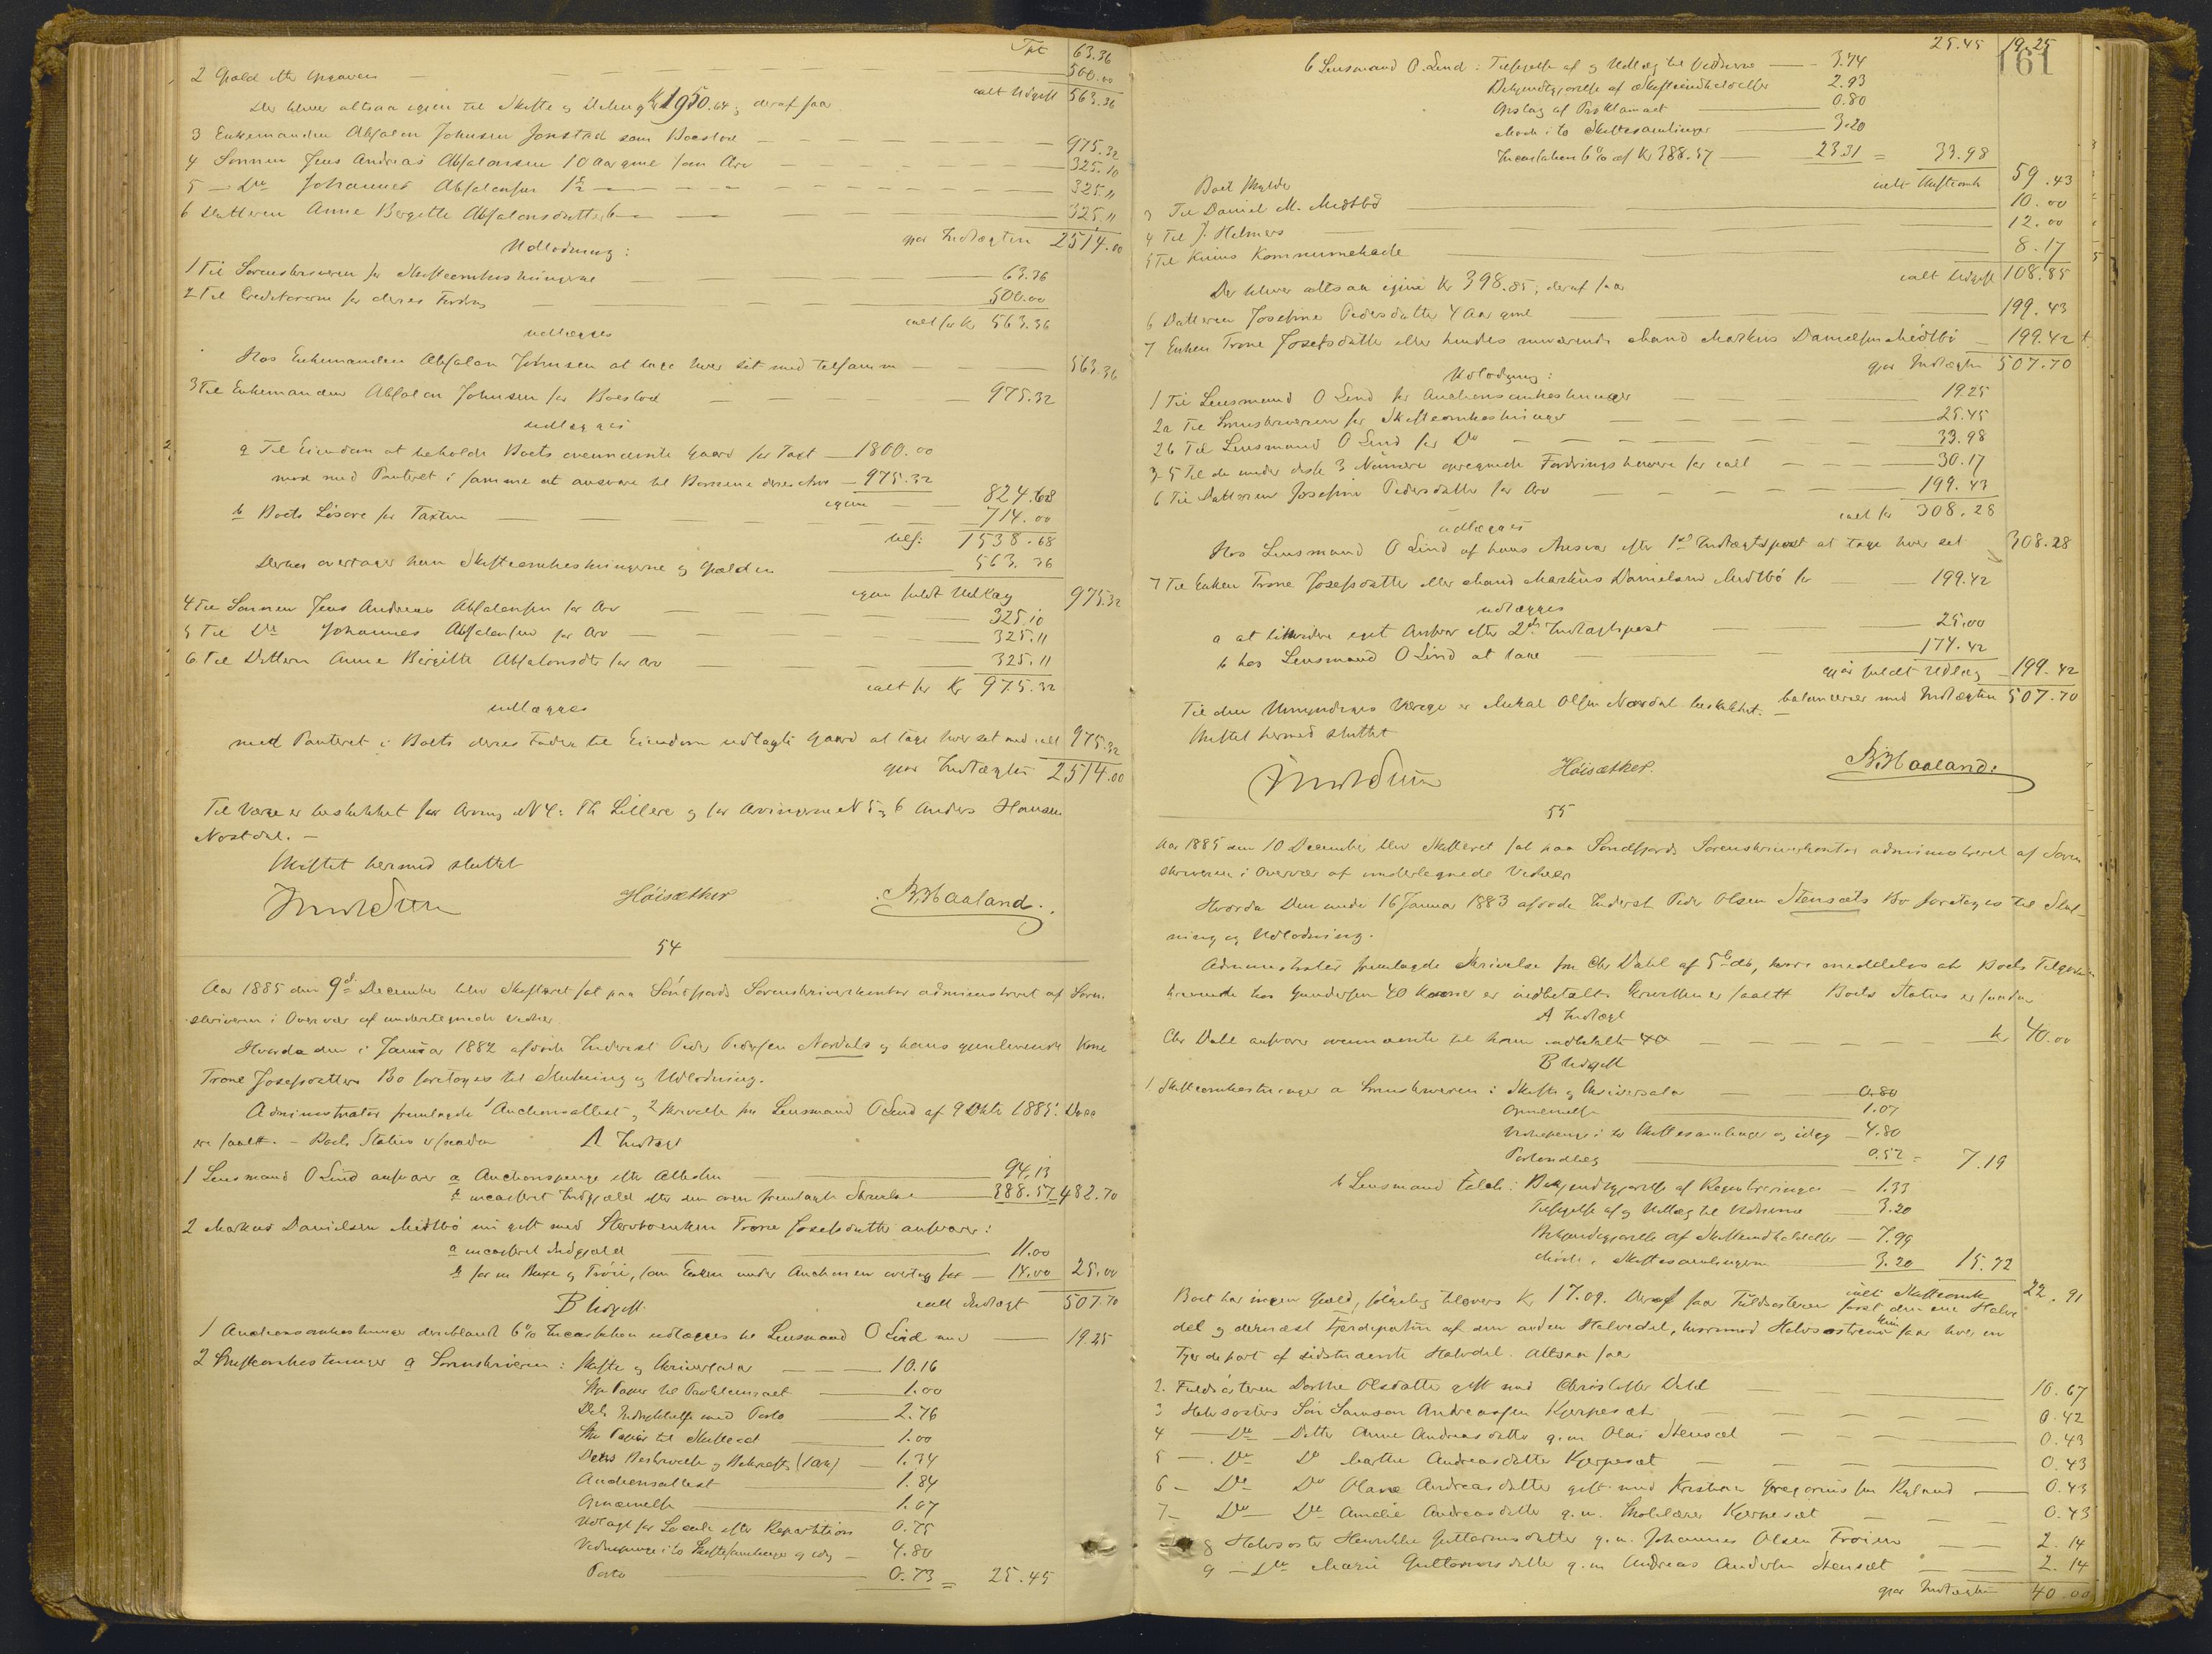 Tpt 63.36
2 Gjæld efter Opgaven 500.00
ialt Udgift 563.36
Der bliver altsaa igjen til Skifte og Deling Kr 1950.64; deraf faar
3 Enkemanden Absalon Johnsen Jonstad som Boeslod 975.32
4 Sønnen Jens Andreas Absalonsen 10 Aar gml som Arv 325.10
5 — Do Johannes Absalonsen 325.11
6 Datteren Anne Bergitte Absalonsdatter 6 325.11
gjør Indtægten 2514.00
Udlodning:
1 Til Sorenskriveren for Skifteomkostningerne 63.36
2 Til Creditorerne for deres Fordring 500.00
ialt for Kr 563.36
udlægges
Hos Enkemanden Absalon Johnsen at tage hver sit med tilsammen 563.36
3 Til Enkemanden Absalon Johnsen for Boeslod 975.32
udlægges
a Til Eiendom at beholde Boets ovennævnte Gaard for Taxt 1800.00
mod med Panteret i samme at ansvare til Børnene deres Arv 975.32
igjen 824.68
b Boets Løsøre for Taxten 714.00
tils: 1538.68
Derhos overtager han Skifteomkostningerne og Gjælden 563.36
igjen fuldt Udlæg 975.32
4 Til Sønnen Jens Andreas Absalonsen for Arv 325.10
5 Til Do Johannes Absalonsen for Arv 325.11
6 Til Dattern Anne Birgitte Absalonsdtr for Arv 325.11
ialt for Kr 975.32
udlægges
med Panteret i Boets deres Fader til Eiendom udlagte Gaard at tage hver sit med ialt 975.32
gjør Indtægten 2514.00
Til Værge er beskikket for Arving N 4: Th Lillere og for Arvingerne N 5 og 6 Anders Hansen
Nostdal. —
Skiftet hermed sluttet
Høisæther B. Haaland.
54
Aar 1885 den 9de December blev Skifteret sat paa Søndfjords Sorenskriverkontor administreret af Soren-
skriveren i Overvær af undertegnede Vidner.
Hvorda den i Januar 1882 afdøde Inderst Peder Pedersen Nordals og hans gjenlevende Kone
Trone Josefsdatters Bo foretoges til Slutning og Udlodning.
Administrator fremlagde 1 Auctionsattest, 2 Skrivelse fra Lensmand O Lind af 9 Okt 1885. Disse
ere saalt. — Boets Status er saadan
A Indtægt
1 Lensmand O Lind ansvarer a Auctionspenge efter Attesten 94.13
b incasseret Indgjæld efter den oven fremlagte Skrivelse 388.57 = 482.70
2 Markus Danielsen Midtbø nu gift med Stervboenken Trone Josefsdatter ansvarer:
a incasseret Indgjæld 11.00
b for en Buxe og Trøie, som Enken under Auctionen overtog for 14.00 25.00
ialt Indtægt 507.70
B Udgift.
1 Auctionsomkostninger deriblandt 6% Incassation udlægges til Lensmand O Lind med 19.25
2 Skifteomkostninger a Sorenskriveren: Skifte og Skriversalar 10.16
Stp Papir til Proklamaet 1.00
Dets Indrykkelse med Porto 2.76
Stp Papir til Skiftets 1.00
Dets Beskrivelse og Bekræft. (1 Ark) 1.34
Auctionsattest 1.84
Opnævnelse 1.07
Udlagt for Locale efter Repartition 0.75
Vidnepenge i to Skiftesamlinger og idag 4.80
Porto 0.73 = 25.45
25.45 19.25
161
b Lensmand O. Lind: Tilsigelse af og Udlæg til Vidnerne 3.74
Bekjendtgjørelse af Skifteindholdelse 2.93
Opslag af Proklamaet 0.80
Møde i to Skiftesamlinger 3.20
Incassation 6% af Kr 388.57 23.31 = 33.98
ialt Skifteomk 59.43
Boet skylder
3 Til Daniel M. Midtbø 10.00
4 Til J. Helmers 12.00
5 Til Kinns Kommunekasse 8.17
ialt Udgift 108.85
Der bliver altsaa igjen Kr 398.85, deraf faar
6 Datteren Josefine Pedersdatter 4 Aar gml 199.43
7 Enken Trone Josefsdatter eller hendes nuværende Mand Markus Danielsen Midtbø 199.42
gjør Indtægten 507.70
Udlodning:
1 Til Lensmand O Lind for Auctionsomkostninger 19.25
2a Til Sorenskriveren for Skifteomkostninger 25.45
2b Til Lensmand O Lind for Do 33.98
3-5 Til de under disse 3 Numere opregnede Fordringshavere for ialt 30.17
6 Til Datteren Josefine Pedersdatter for Arv 199.43
ialt for 308.28
udlægges
Hos Lensmand O Lind af hans Ansvar efter 1ste Indtægtspost at tage hver sit 308.28
7 Til Enken Trone Josefsdatter eller Mand Markus Danielsen Midtbø for 199.42
udlægges
a at likvidere eget Ansvar efter 2den Indtægtspost 25.00
b hos Lensmand O Lind at tage 174.42
gjør fuldt Udlæg 199.42
balancerer med Indtægten 507.70
Til den Umyndiges Værge er Mikal Olsen Nordal beskikket.
Skiftet hermed sluttet
Høisæther. B. Haaland.
55
Aar 1885 den 10 December blev Skifteret sat paa Søndfjords Sorenskriverkontor administreret af Soren
skriveren i Overvær af undertegnede Vidner
Hvorda Den under 16 Januar 1883 afdøde Inderst Peder Olsen Stensæts Bo foretoges til Slut-
ning og Udlodning.
Administrator fremlagde Skrivelse fra Chr Dahl af 5te ds, hvori meddeles at Boets Tilgode-
havende hos Gundersen 40 Kroner er indbetalt. Skrivelsen er saalt. Boets Status er saadan
A Indtægt
Chr Dahl ansvarer ovennævnte til ham indbetalte 40 kr 40.00
B Udgift
1 Skifteomkostninger a Sorenskriveren: Skifte og Skriversalar 0.80
Opnævnelse 1.07
Vidnepenge i to Skiftesamlinger og idag 4.80
Portoudlæg 0.52 = 7.19
b Lensmand Falch: Bekjendtgjørelse af Registreringen 1.33
Tilsigelse af og Udlæg til Vidnerne 3.20
Bekjendtgjørelse af Skifteindholdelse 7.99
Møde i Skiftesamlingerne 3.20 15.72
ialt Skifteomk 22.91
Boet har ingen Gjæld, følgelig tilovers Kr 17.09. Deraf faar Fuldsøsteren først den ene Halve
del og dernæst Fjerdeparten af den anden Halvedel, hvorimod Halvsøstrene kun faar hver en
Fjerdepart af sidstnævnte Halvdel. Altsaa faar
2. Fuldsøsteren Dorthe Olsdatter gift med Christoffer Dahl 10.67
3 Halvsøsters Søn Samson Andreassen Kjerpesæt 0.42
4 — Do — Datter Anne Andreasdatter g.m. Olai Stensæt 0.43
5 — Do Do Marthe Andreasdatter Kjerpesæt 0.43
6 — Do Do Olave Andreasdatter gift med Kristian Gregoriussen Ryland 0.43
7 — Do Do Amalie Andreasdatter g.m. Skolelærer Kjerpesæt 0.43
8 Halvsøster Henrikke Guttormsdatter g.m. Johannes Olsen Frøien 2.14
9 — Do Marie Guttormsdatter g.m. Andreas Andersen Stensæt 2.14
gjør Indtægten 40.00